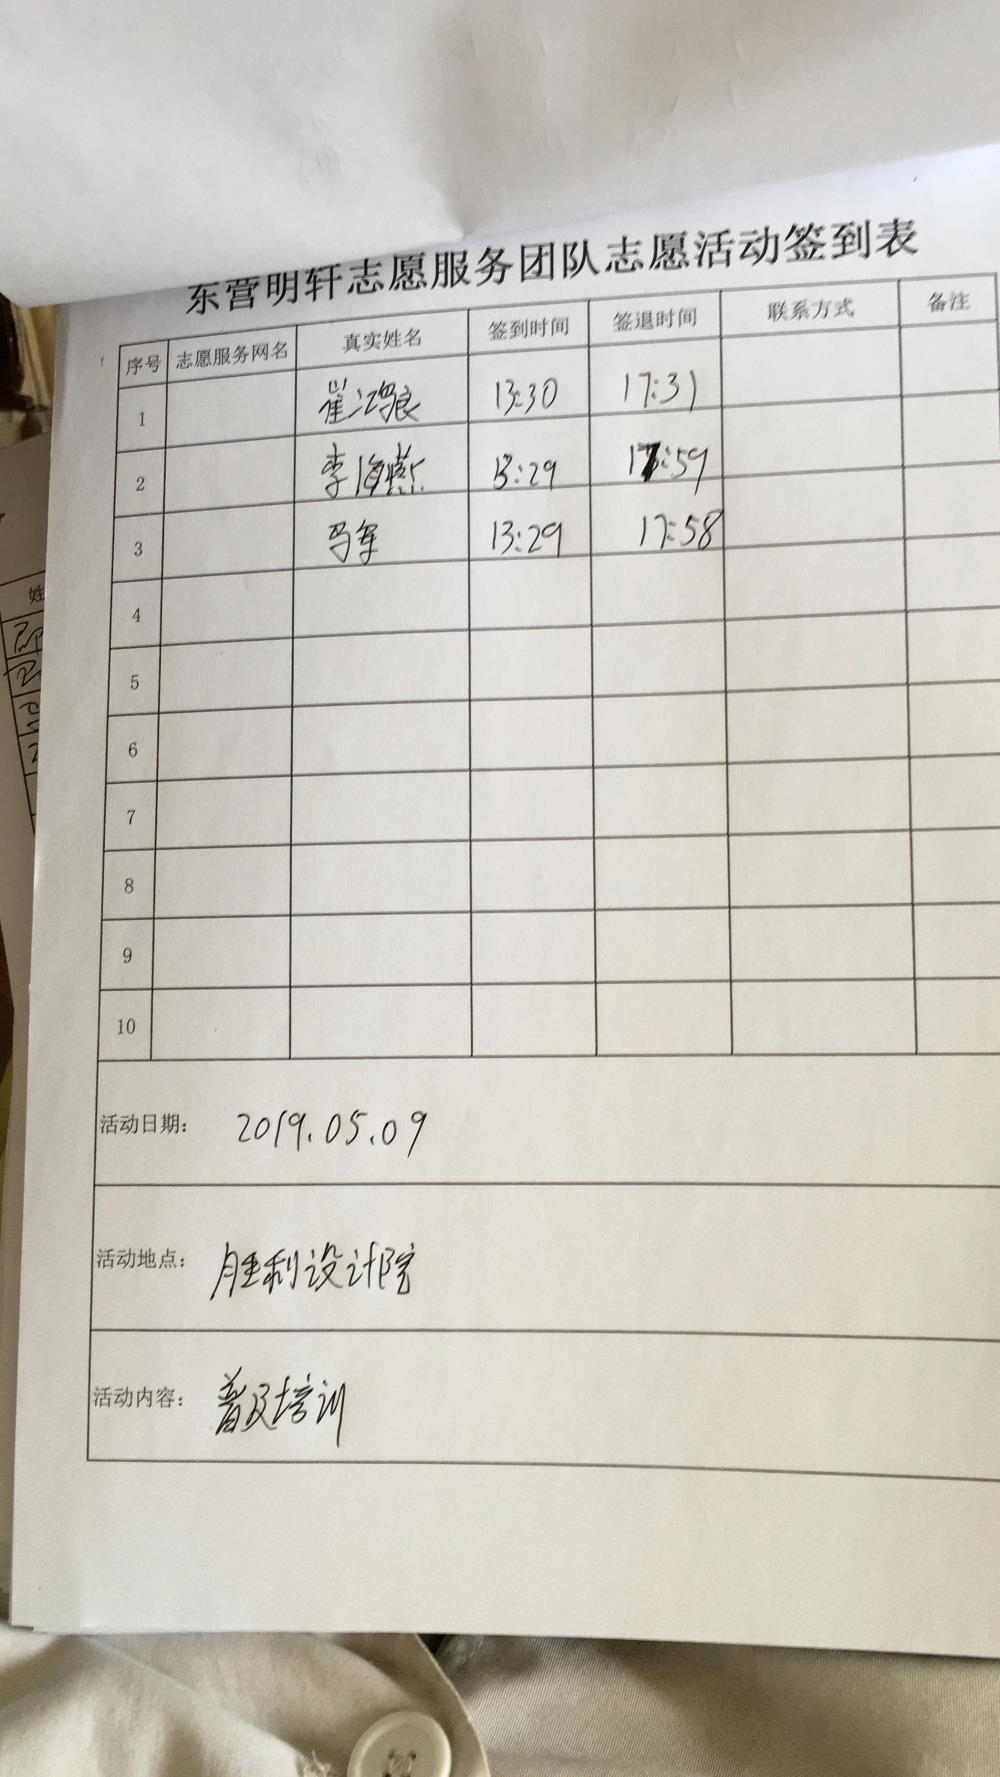 东营明轩志愿服务团队志愿活动签到表
序号 志愿服务网名 真实姓名 签到时间 签退时间 联系方式 备注
1 崔鸿良 13:30 17:31
2 李海燕 13:29 17:59
3 马军 13:29 17:58
4
5
6
7
8
9
10
活动日期： 2019.05.09
活动地点： 胜利设计院
活动内容： 普及培训
姓